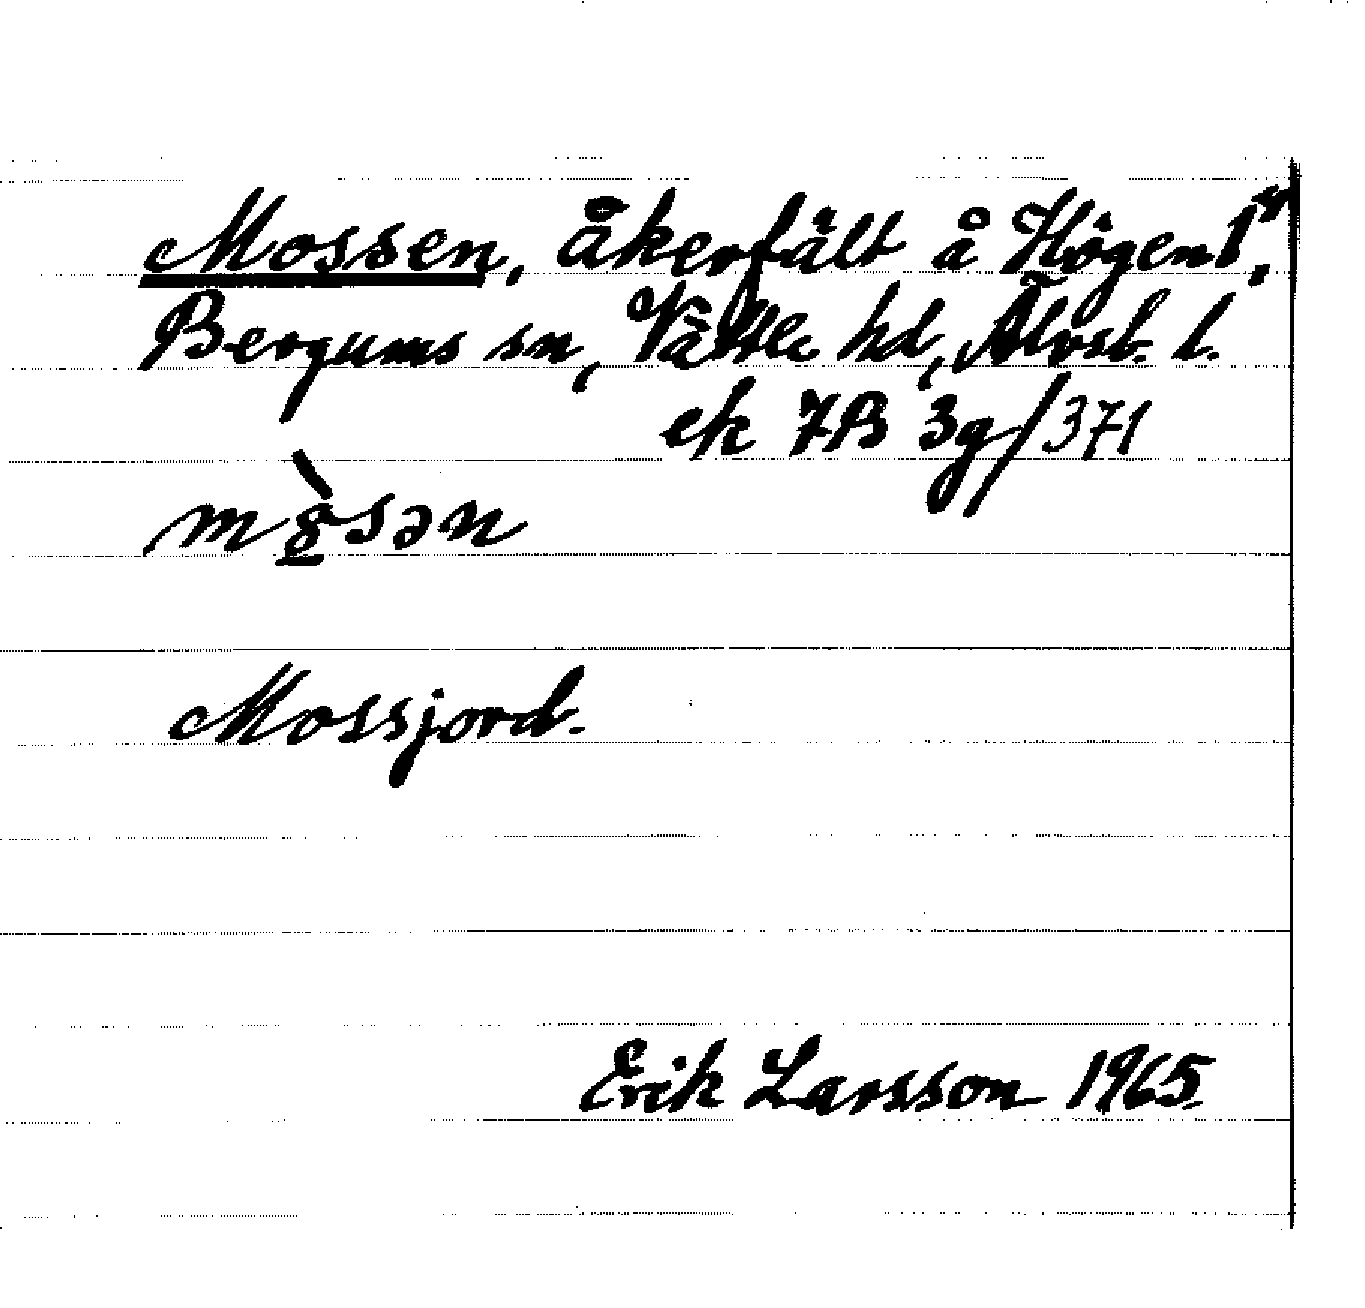 Mossen, åkerfält å Högen 1⁴,
Bergums sn, Vättle hd, Älvsb. l.
ek 7B 3g/371
sən
Mossjord.
Erik Larsson 1965.